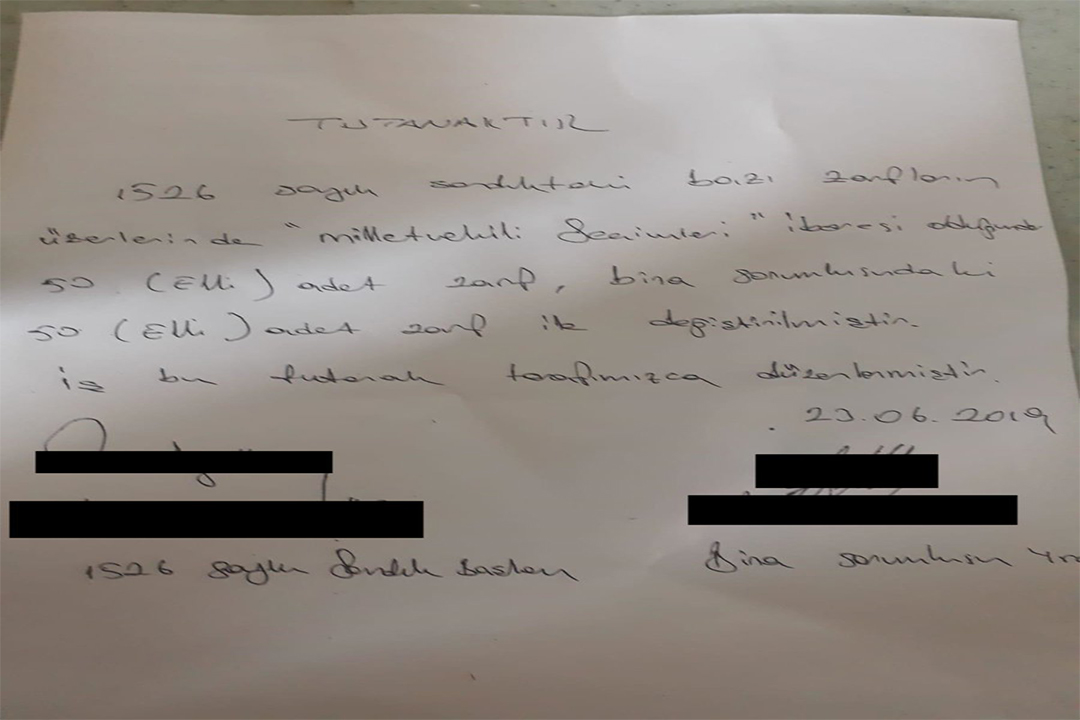 TUTANAKTIR
1526 sayılı sandıktaki bazı zarfların
üzerlerinde "milletvekili Seçimleri" ibaresi olduğundan
50 (Elli) adet zarf, bina sorumlusundaki
50 (Elli) adet zarf ile değiştirilmiştir.
iş bu tutanak tarafımızca düzenlenmiştir.
23.06.2019
1526 sayılı Sandık Başkanı
Bina sorumlusu Yrd